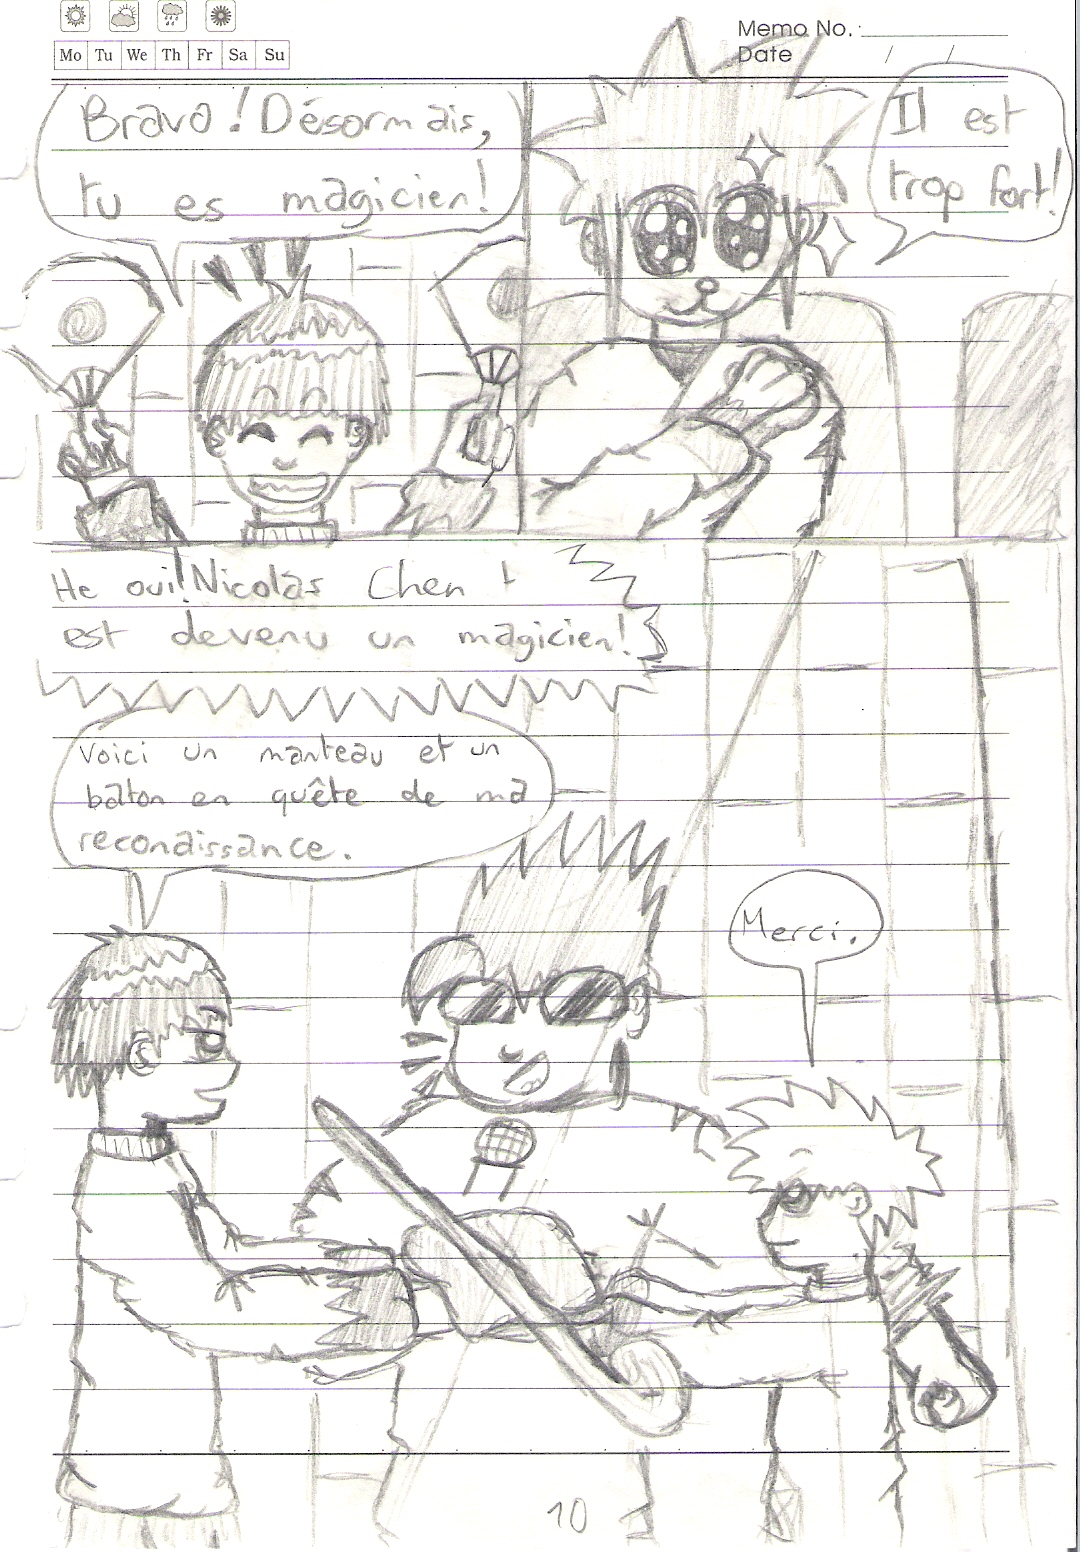 Memo No.
Mo Tu We Th Fr Sa Su
Date / /
Bravo! Désormais,
tu es magicien!
Il est
trop fort!
He oui! Nicolas Chen
est devenu un magicien!
Voici un manteau et un
bâton en quête de ma
reconaissance.
Merci.
10